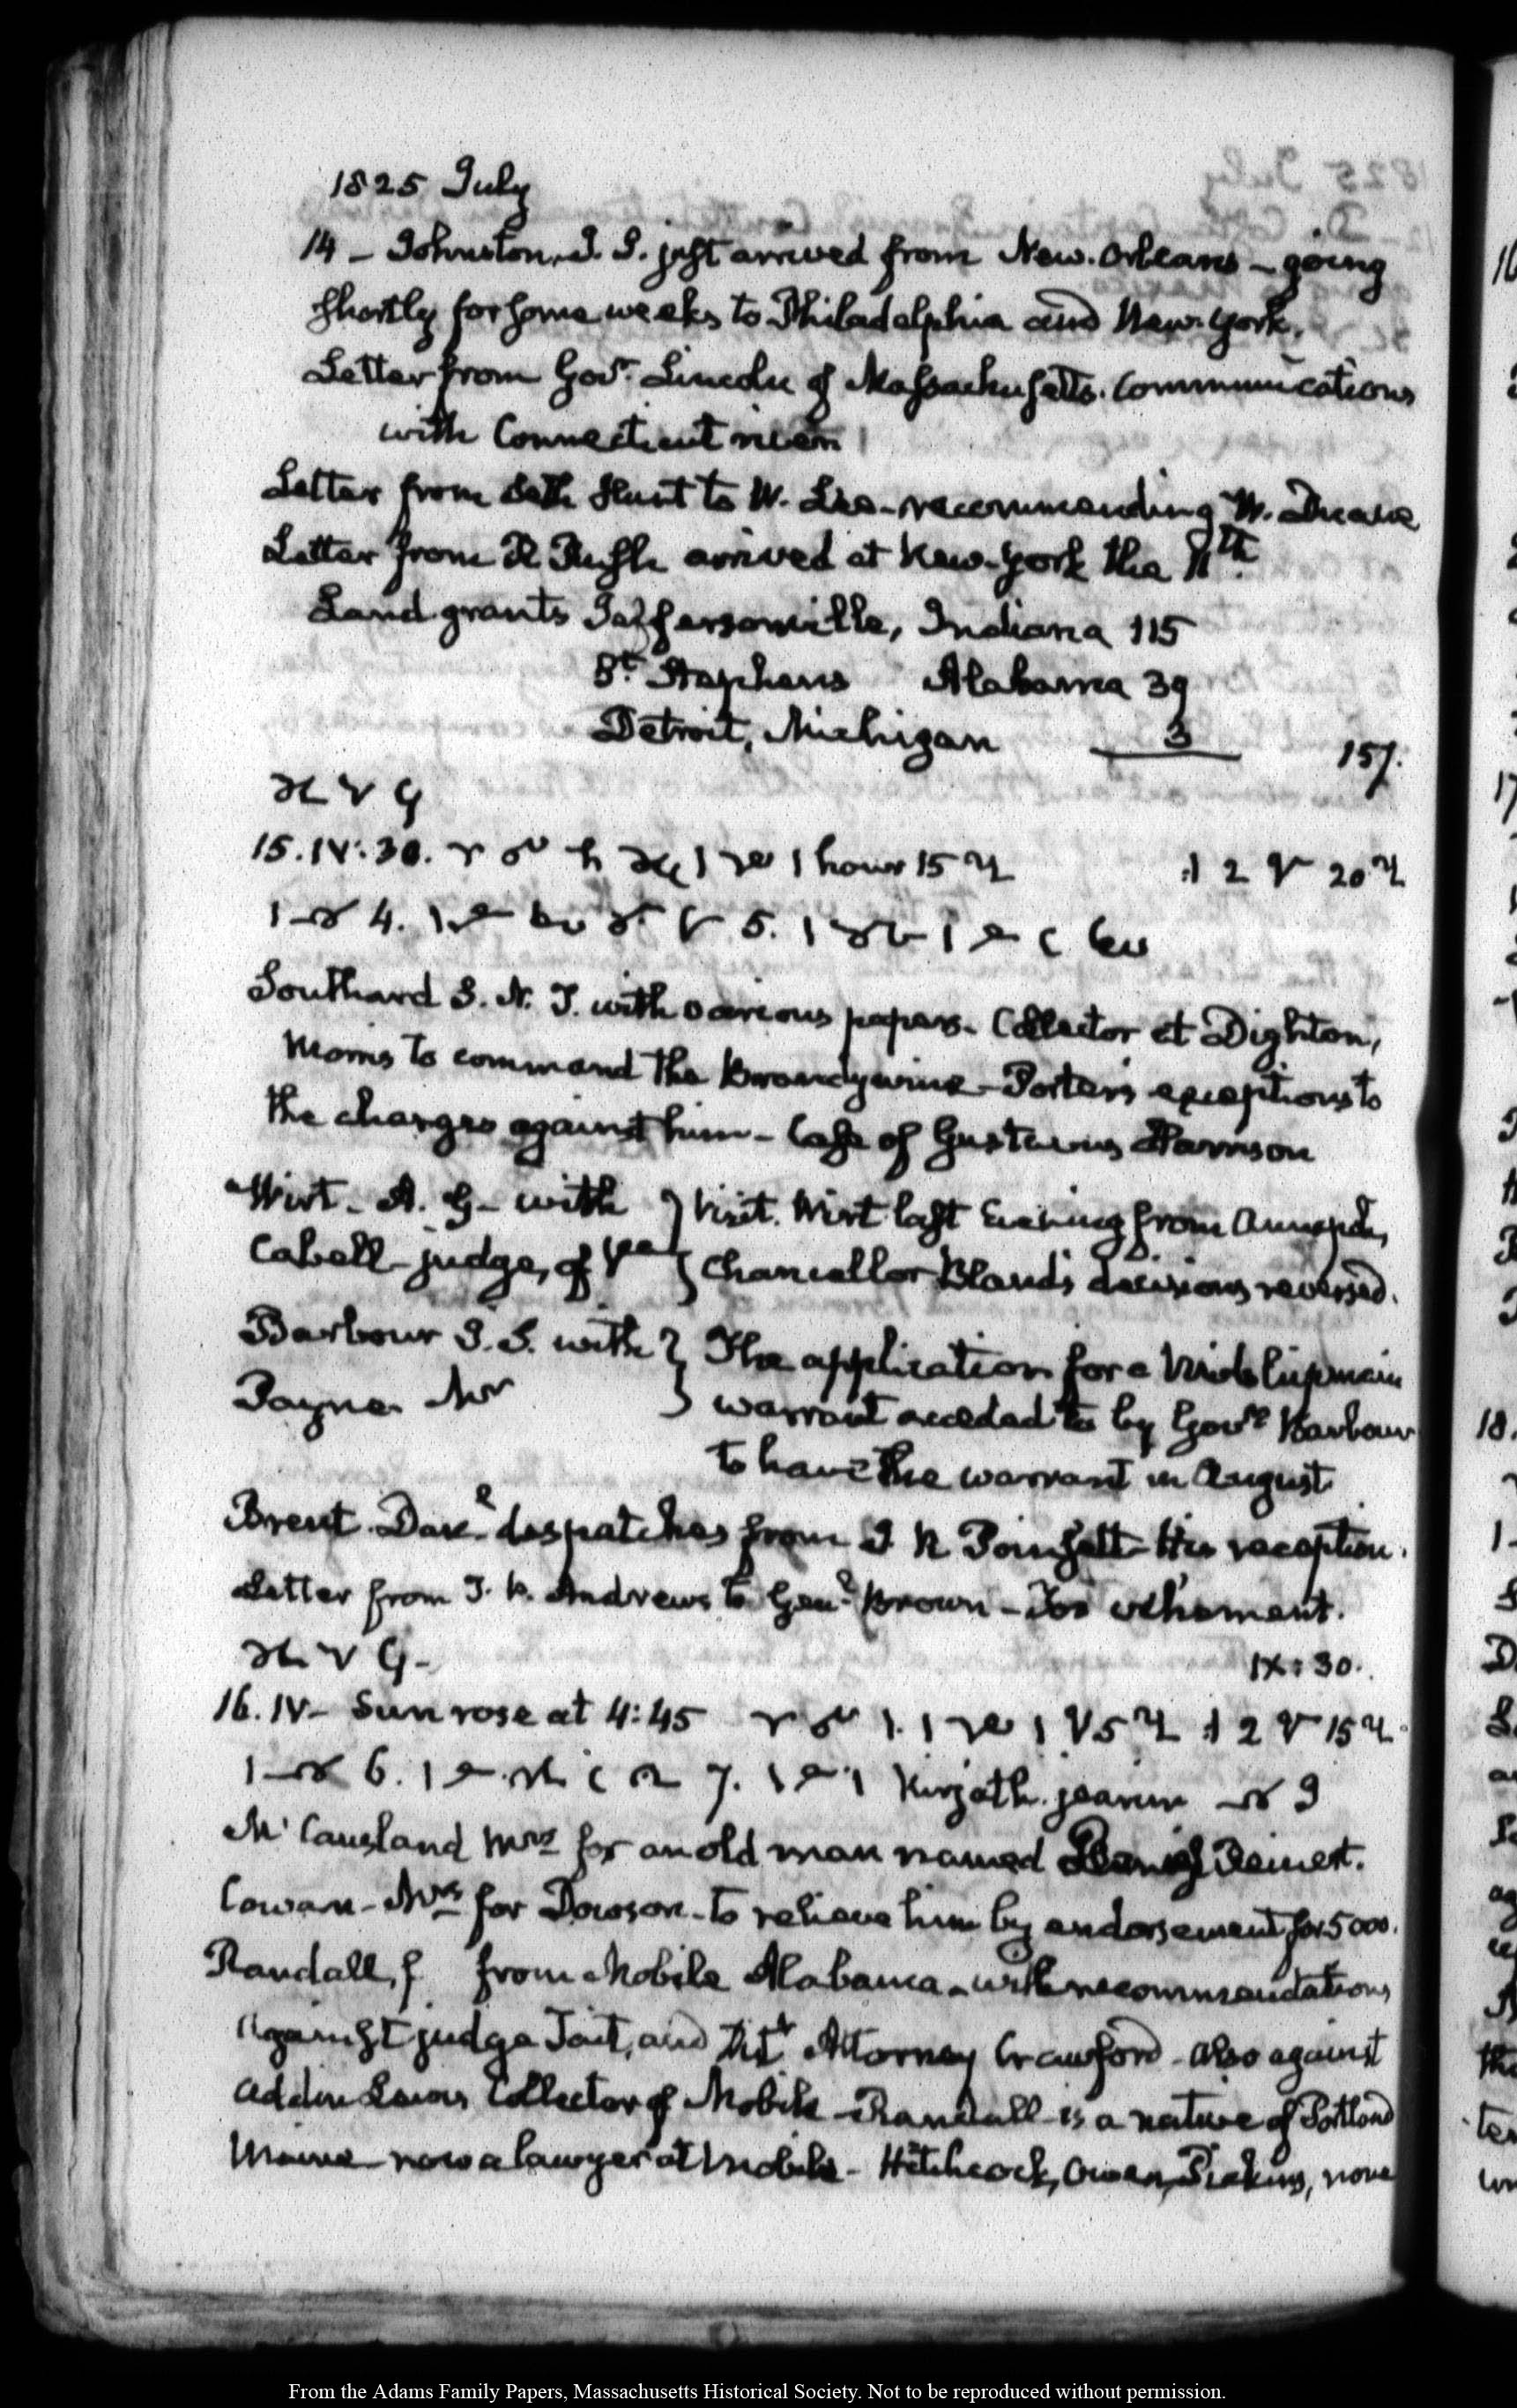 1825 July
14 – Johnston, J. S. just arrived from New-Orleans – going
shortly for some weeks to Philadelphia and New-York.
Letter from Govr. Lincoln of Massachusetts. Communications
with Connecticut river
Letter from Seth Hunt to W. Lee – recommending W. Duane
Letter from R Rush arrived at New-York the
Land grants Jeffersonville, Indiana 115
St. Stephens Alabama 39
Detroit, Michigan 3 157.
15. IV:30. 1 hour 15 2 20
4. 5.
Southard S. N. J. with various papers – Collector at Dighton,
Morris to command the Brandywine – Porter's exceptions to
the charges against him – Case of Gustavus Harrison
Wirt – A. G – with } Visit. Wirt last Evening from Annaps,
Cabell – judge, of } Chancellor Bland's decisions reversed.
Barbour J. S. with } The application for a Midshipman
Payne Mr } warrant acceded to by Govr. Barbour
to have the warrant in August
Brent. Danl. despatches from J R Poinsett – His reception.
Letter from T. P. Andrews to Genl. Brown – Too vehement.
IX:30.
16. IV – Sun rose at 4:45 5 2 15
6. 7. Kirjath. jearim 9
McCausland Mrs for an old man named
Cowan – Mrs for Dawson – to relieve him by endorsement for 5000.
Randall, from Mobile Alabama – with recommendations
against judge Tait, and Dist Attorney Crawford – also against
Addin Lewis Collector of Mobile – Randall is a native of Portland
Maine now a lawyer at Mobile – Hitchcock, Owen, Pickens, none